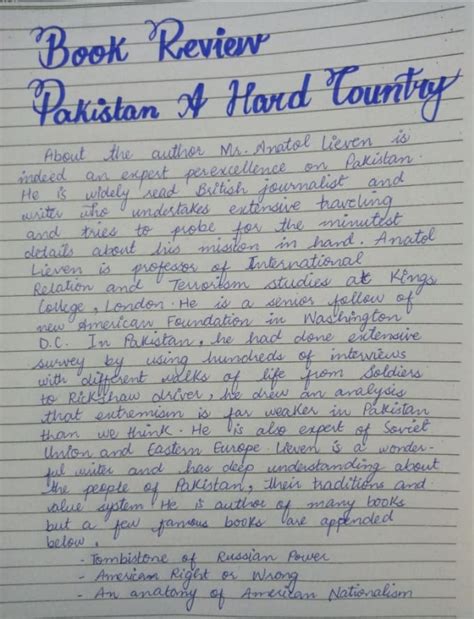 Book Review
Pakistan A Hard Country
About the author Mr. Anatol Lieven is
indeed an expert perexcellence on Pakistan.
He is widely read British journalist and
writer who undertakes extensive traveling
and tries to probe for the minutest
details about his mission in hand. Anatol
Lieven is professor of International
Relation and Terrorism studies at Kings
College, London. He is a senior follow of
new American Foundation in Washington
D.C. In Pakistan, he had done extensive
survey by using hundreds of interviews
with different walks of life from Soldiers
to Rickshaw driver, he drew an analysis
that extremism is far weaker in Pakistan
than we think. He is also expert of Soviet
Union and Eastern Europe. Lieven is a wonder-
ful writer and has deep understanding about
the people of Pakistan, their traditions and
value system. He is author of many books
but a few famous books are appended
below.
- Tombistone of Russian Power
- American Right or Wrong
- An anatomy of American Nationalism